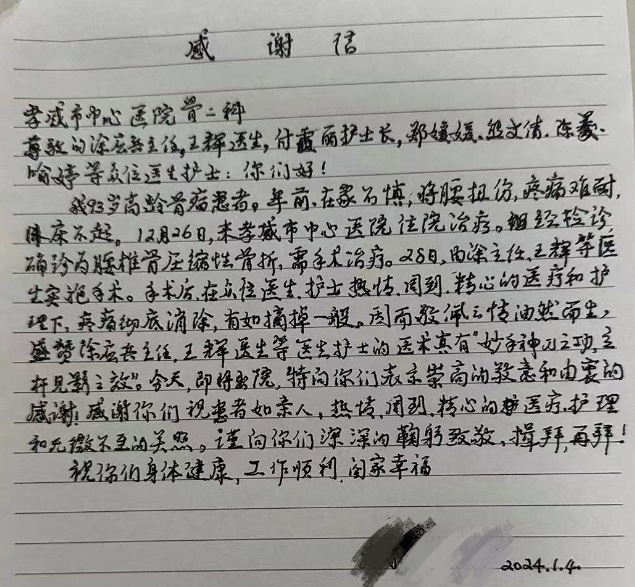 感谢信
孝感市中心医院骨二科
尊敬的涂应兵主任,王辉医生,付霞丽护士长,郑媛媛.熊文倩.陈蒙.
喻婷等众位医生护士:你们好!
我93岁高龄骨病患者。年前.在家不慎,将腰扭伤,疼痛难耐,
卧床不起。12月26日,来孝感市中心医院住院治疗。经检诊,
确诊为腰椎骨压缩性骨折,需手术治疗。28日,由涂主任.王辉等医
生实施手术。手术后,在众位医生.护士热情.周到.精心的医疗和护
理下,疼痛彻底消除,有如摘掉一般。因而敬佩之情油然而生,
盛赞涂应兵主任,王辉医生等医生护士的医术真有"妙手神刀之功,立
杆见影之效"。今天,即将出院,特向你们表示崇高的敬意和由衷的
感谢.感谢你们视患者如亲人,热情.周到.精心的医疗.护理
和无微不至的关照。谨向你们深深的鞠躬致敬,揖拜,再拜!
祝你们身体健康,工作顺利.阖家幸福
2024.1.4.